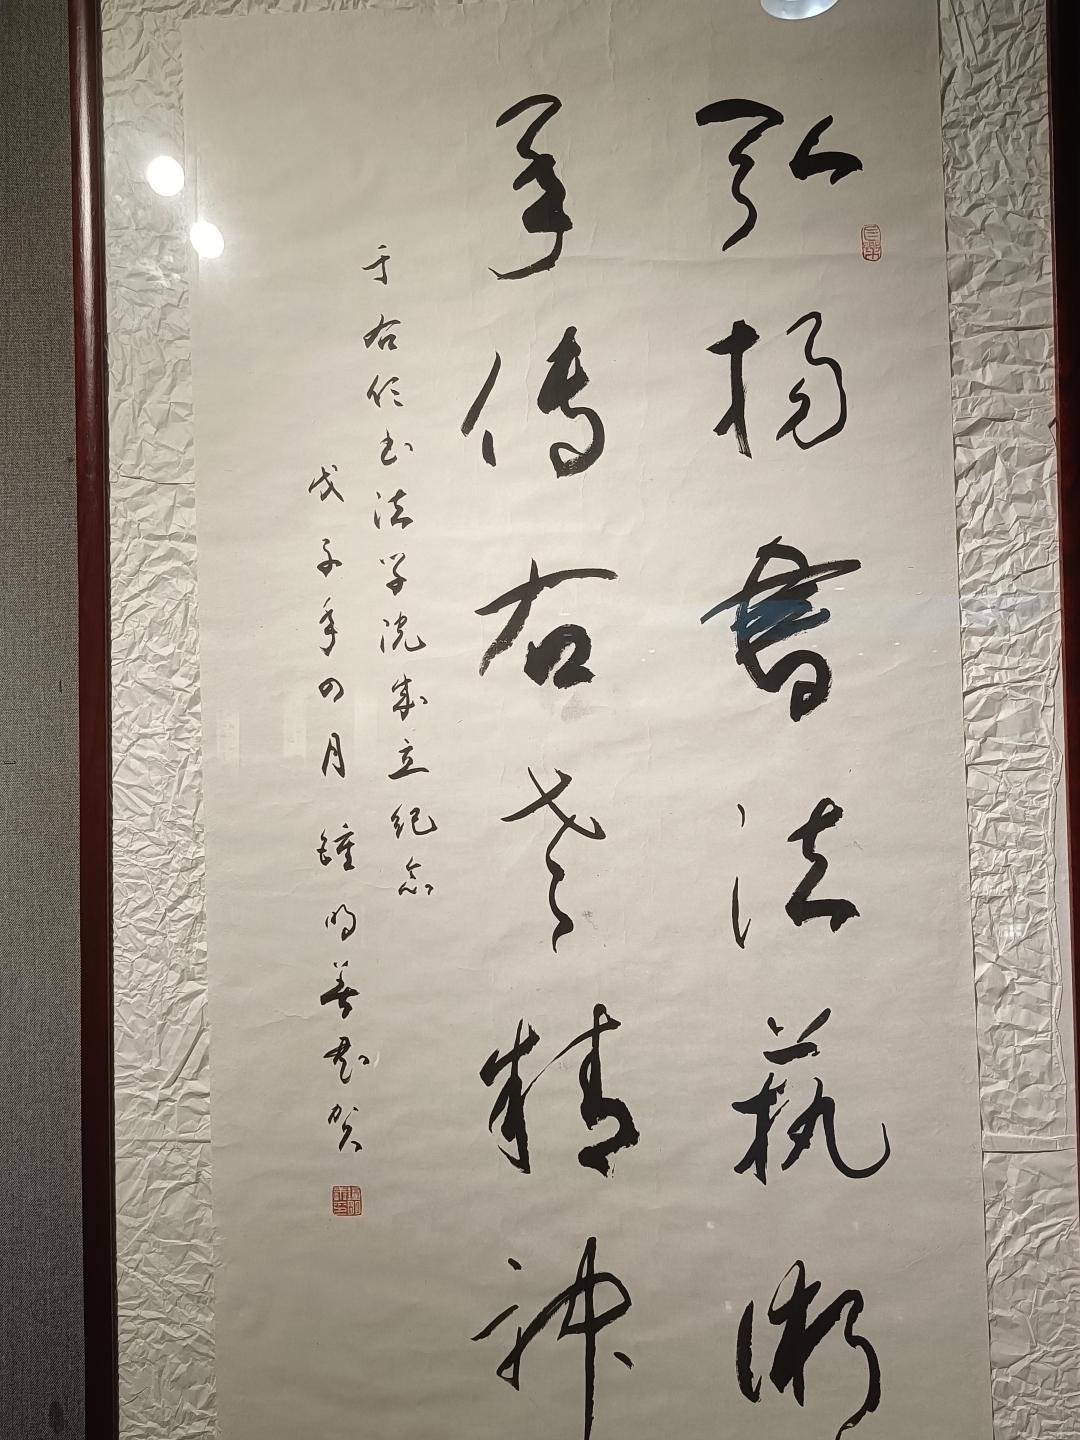 弘扬書法藝術
承传右老精神
于右任书法学院成立纪念
戊子年四月鍾明善敬贺